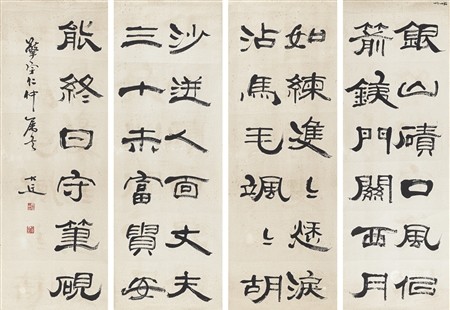 銀山磧口風佀
箭鐵門關西月
如練雙〻愁淚
沾馬毛颯〻胡
沙迸人面丈夫
三十未富貴安
能終日守筆硯
仁仲